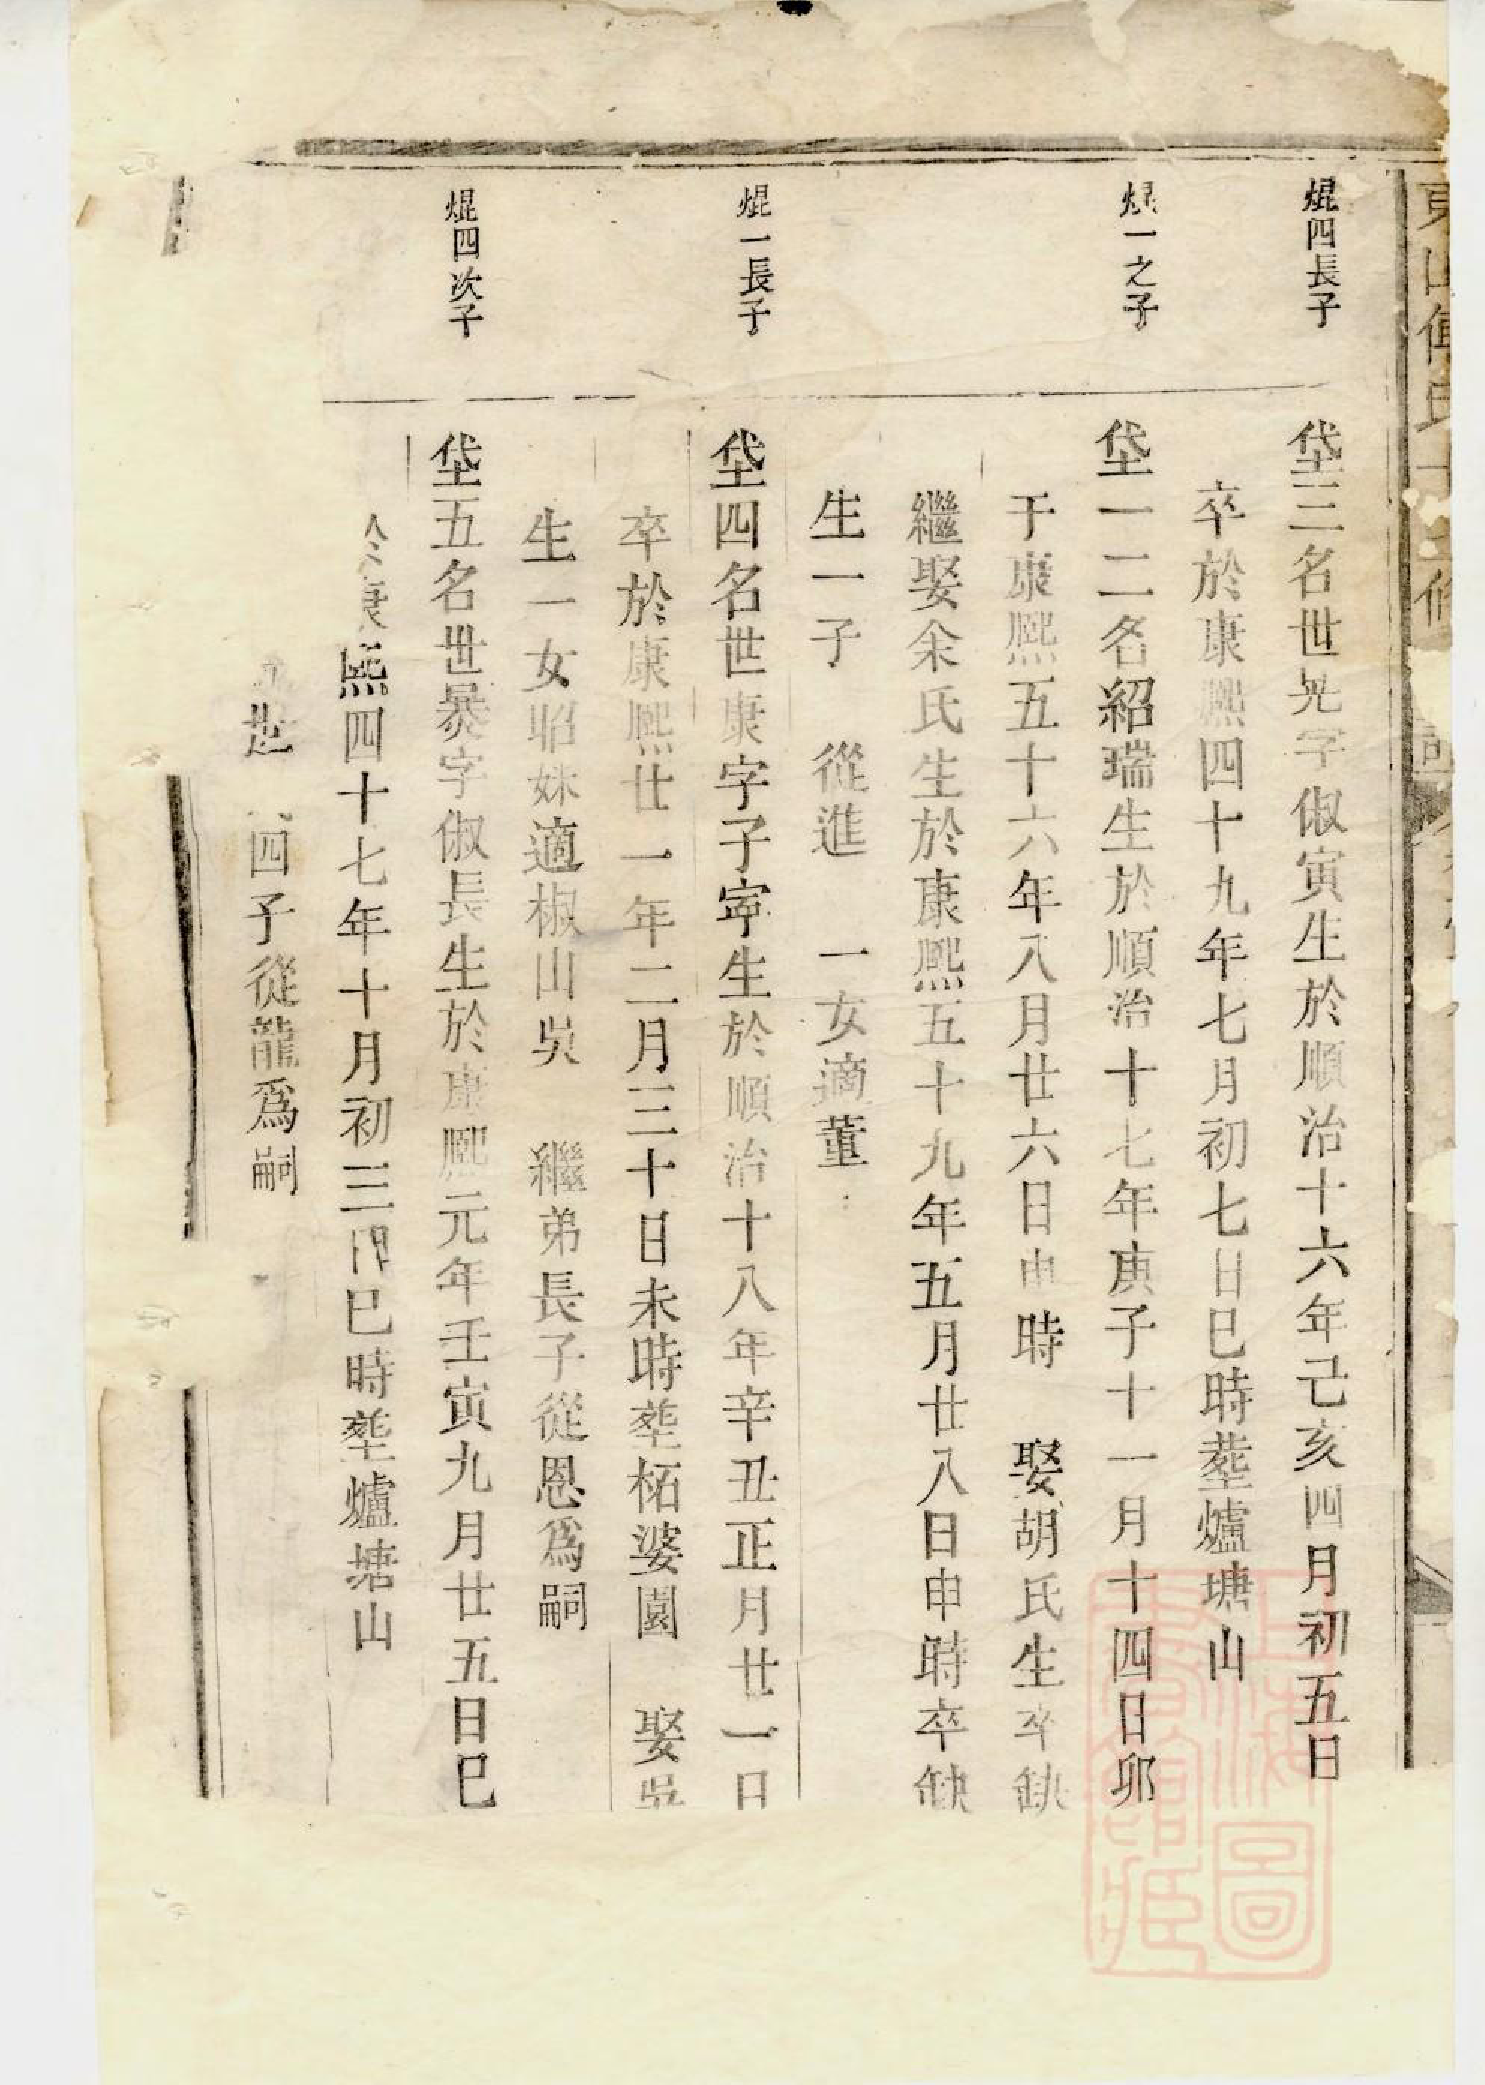 焜四長子
垈三名世晃字俶寅生於順治十六年己亥四月初五日
卒於康熙四十九年七月初七日巳時塟爐塘山
焜一之子
垈一二名紹瑞生於順治十七年庚子十一月十四日卯
于康熙五十六年八月廿六日申時 娶胡氏生卒缺
繼娶余氏生於康熙五十九年五月廿八日申時卒缺
生一子 從進 一女適董
焜一長子
垈四名世康字子寧生於順治十八年辛丑正月廿一日
卒於康熙廿一年二月三十日未時塟柘婆園 娶吳
生一女昭妹適椒山吳 繼弟長子從恩爲嗣
焜四次子
垈五名世暴字俶長生於康熙元年壬寅九月廿五日巳
於康熙四十七年十月初三日巳時塟爐塘山
世 四子從龍爲嗣
上海圖書館藏